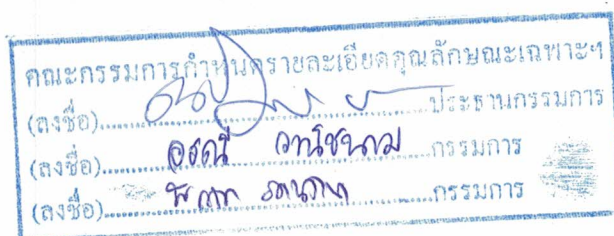 คณะกรรมการกำหนดรายละเอียดคุณลักษณะเฉพาะฯ
(ลงชื่อ)....................ประธานกรรมการ
(ลงชื่อ)..........อรณี วานิชนาม..........กรรมการ
(ลงชื่อ)....................กรรมการ